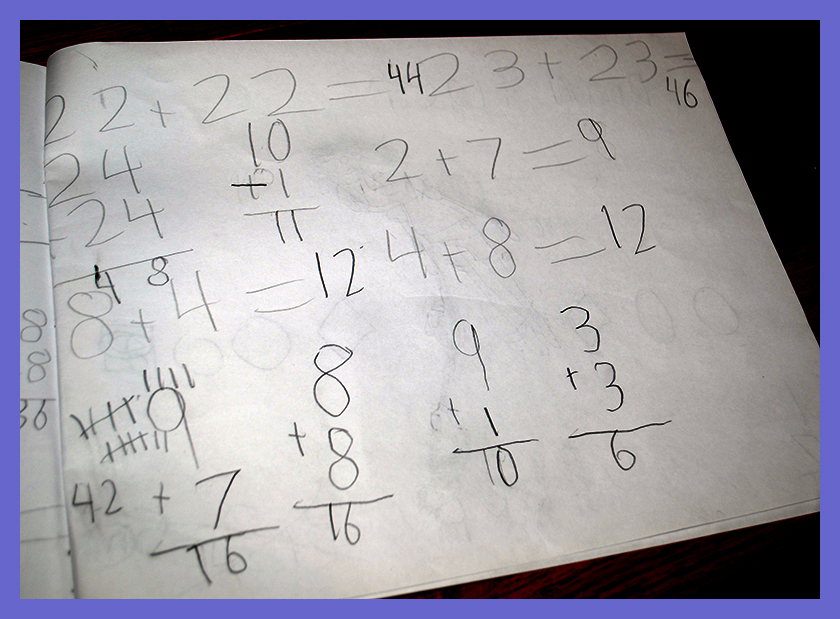 22 + 22 = 44
23 + 23 = 46
24
+24
48
10
+1
11
2 + 7 = 9
8 + 4 = 12
4 + 8 = 12
9
42 + 7
16
8
+ 8
16
9
+ 1
10
3
+ 3
6
36